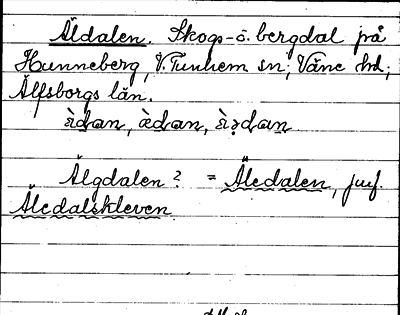 Äldalen. Skogs- o. bergdal på
Hunneberg, V. Tunhem sn, Väne hd,
Älfsborgs län.
Älgdalen? = Äledalen, jmf.
Äledalskleven